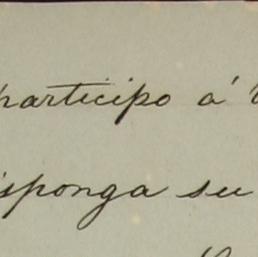 participo á
isponga su